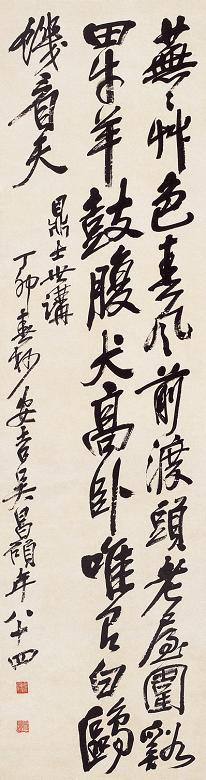 蕪〻艸色春風前渡頭老屋圍谿
田牛羊鼓腹犬高卧唯有白鷗
饑看天
鼎士世講
丁卯春杪安吉吴昌碩年八十四